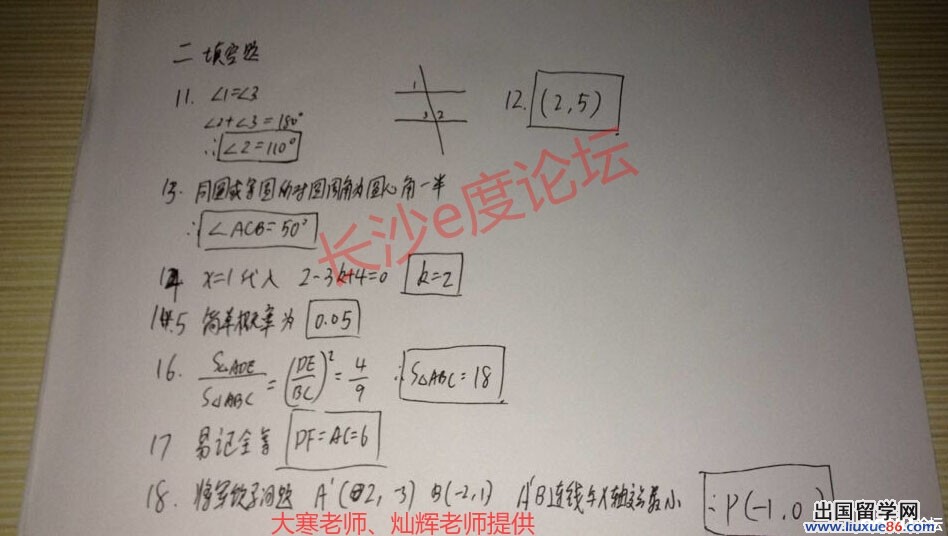 二 填空题
11. ∠1=∠3
∠2+∠3=180°
∴ ∠2=110°
1
3 2
12. (2,5)
13. 同圆或等圆所对圆周角为圆心角一半
∴ ∠ACB=50°
14 x=1代入 2-3k+4=0 k=2
15 简单概率为 0.05
16. S△ADE/S△ABC = (DE/BC)² = 4/9 ∴ S△ABC=18
17 易记全等 DF=AC=6
18. 将军饮马问题 A'( 2, -3) B(-2,1) A'B连线与X轴交点最小 ∴P(-1,0
长沙e度论坛
大寒老师、灿辉老师提供
出国留学网
www.liuxue86.com